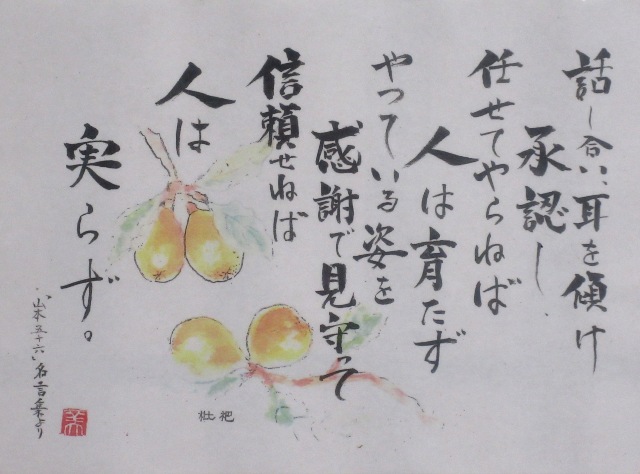 話し合い、耳を傾け
承認し
任せてやらねば
人は育たず
やっている姿を
感謝で見守って
信頼せねば
人は
実らず。
"山本五十六"名言集より
枇杷